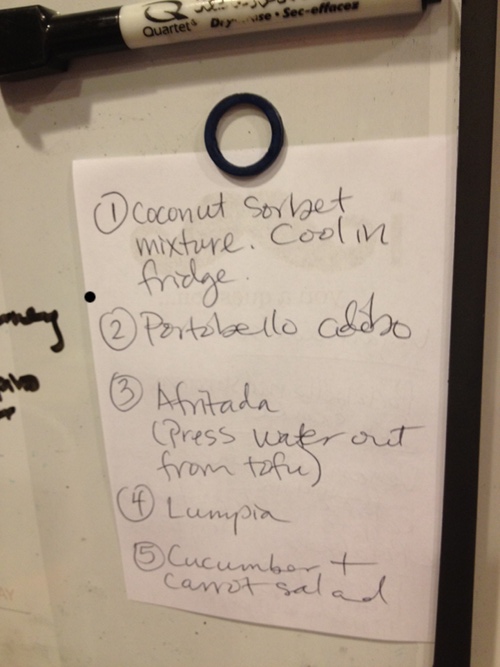 Quartet
Dry-Erase • Sec-effaces
① Coconut Sorbet
mixture. Cool in
fridge.
② Portobello adobo
③ Afritada
(Press water out
from tofu)
④ Lumpia
⑤ Cucumber +
carrot salad